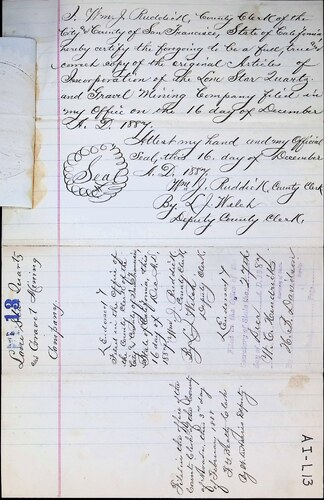 I, Wm J. Ruddick, County Clerk of the
City & County of San Francisco, State of California
hereby certify the forgoing to be a full, true &
correct copy of the original Articles of
Incorporation of the Lone Star Quartz
and Gravel Mining Company filed in
my Office on the 16 day of December
A. D. 1887.
Attest my hand and my Official
Seal, this 16. day of December
A. D. 1887.
Seal
Wm J. Ruddick, County Clerk
By L J. Welch
Deputy County Clerk,
13
Lone Star Quartz
and Gravel Mining
Company.
Endorsed
Filed in the Office of
the County Clerk of the
City & County of San Francisco
State of California, this
16 day of Dec A.D.
1887 Wm J. Ruddick Clerk
By L J Welch
Deputy Clerk
Endorsed
Dec 27th
W. C. Hendricks
Filed in the office of the
County Clerk of the County
this 3rd day
of February 1888
Clerk
Deputy
AI-L13